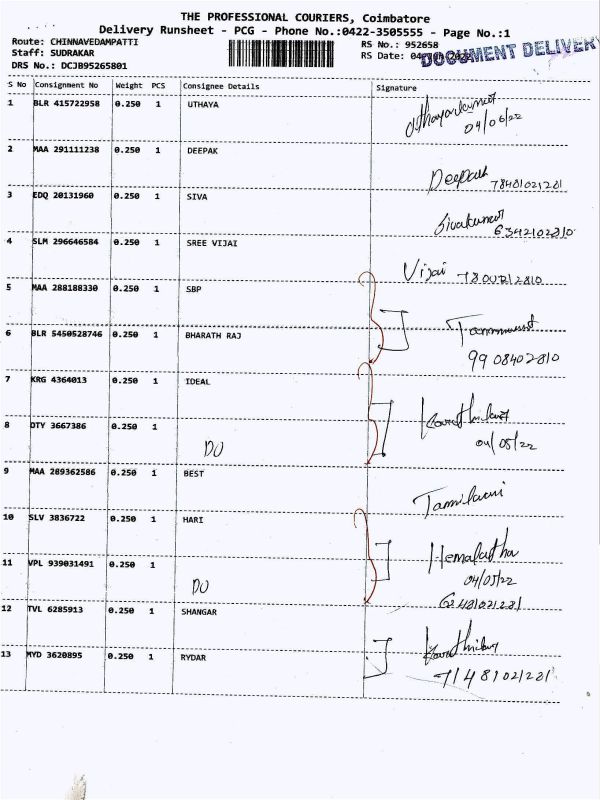 THE PROFESSIONAL COURIERS, Coimbatore
Delivery Runsheet - PCG - Phone No.:0422-3505555 - Page No.:1
Route: CHINNAVEDAMPATTI
RS No.: 952658
DOCUMENT DELIVERY
Staff: SUDRAKAR
RS Date: 04
DRS No.: DCJB95265801
S No Consignment No Weight PCS Consignee Details Signature
1 BLR 415722958 0.250 1 UTHAYA
04/06/22
2 MAA 291111238 0.250 1 DEEPAK
Deepak
3 EDQ 20131960 0.250 1 SIVA
Sivakumar
6342102810
4 SLM 296646584 0.250 1 SREE VIJAI
Vijai
5 MAA 288188330 0.250 1 SBP
6 BLR 5450528746 0.250 1 BHARATH RAJ
9908402810
7 KRG 4364013 0.250 1 IDEAL
8 OTY 3667386 0.250 1
DO
04/05/22
9 MAA 289362586 0.250 1 BEST
10 SLV 3836722 0.250 1 HARI
Hemalatha
11 VPL 939031491 0.250 1
DO
04/05/22
12 TVL 6285913 0.250 1 SHANGAR
13 MYD 3620895 0.250 1 RYDAR